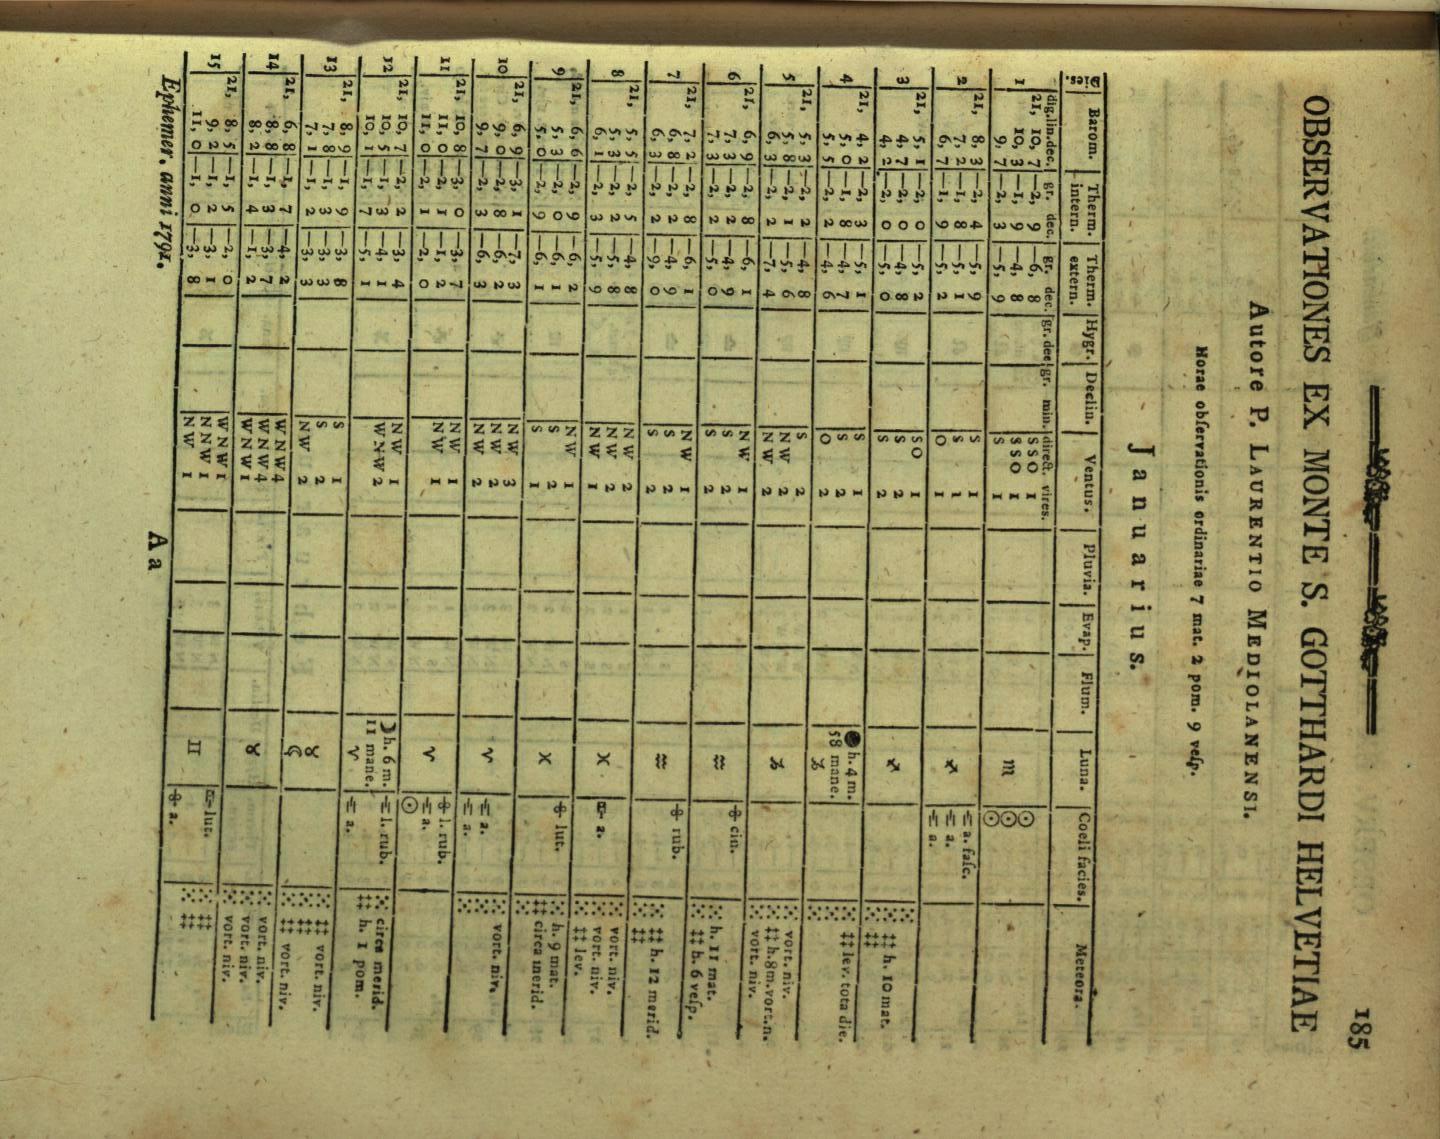 185
OBSERVATIONES EX MONTE S. GOTTHARDI HELVETIAE
Autore P. LAURENTIO MEDIOLANENSI.
Horae obſervationis ordinariae 7 mat. 2 pom. 9 veſp.
Januarius.
Dies. Barom. Therm. intern. Therm. extern. Hygr. Declin. Ventus. Pluvia. Evap. Flum. Luna. Coeli facies. Meteora.
dig. lin. dec. gr. dec. gr. dec. gr. dec. gr. min. direct. vires.
1 21, 10, 7 —2, 9 —6, 8 S S O 1 ☉
10, 3 —1, 9 —4, 8 S S O 1 ♏ ☉
9, 7 —2, 3 —5, 9 S 1 ☉
2 21, 8, 3 —2, 4 —5, 9 S 1 a. faſc.
7, 2 —1, 8 —5, 1 S 1 ♐ a.
6, 7 —1, 9 —5, 2 O 1 a.
3 21, 5, 1 —2, 0 —5, 2 S O 1
4, 7 —2, 0 —4, 8 S 2 ♐ ‡‡ h. 10 mat.
4, 2 —2, 0 —5, 0 S 2 ‡‡
4 21, 4, 2 —2, 3 —5, 1 S 1 ● h. 4 m.
5, 0 —1, 8 —4, 7 S 2 58 mane. ‡‡ lev. tota die.
5, 5 —2, 8 —4, 6 O 2 ♑
5 21, 5, 3 —2, 2 —4, 8 S 2 vort. niv.
5, 8 —2, 1 —5, 6 N W 2 ♑ ‡‡ h. 8 m. vort. n.
6, 3 —2, 2 —7, 4 N W 2 vort. niv.
6 21, 6, 9 —2, 8 —6, 1 N W 1 cin.
7, 3 —2, 2 —4, 9 S 2 ♒ h. 11 mat.
7, 3 —2, 2 —5, 0 S 2 ‡‡ h. 6 veſp.
7 21, 7, 2 —2, 8 —6, 1 N W 1 rub.
6, 8 —2, 2 —4, 9 S 2 ♒ ‡‡ h. 12 merid.
6, 3 —2, 2 —9, 0 S 2 ‡‡
8 21, 5, 5 —2, 5 —4, 8 N W 2 vort. niv.
5, 3 —2, 2 —5, 8 N W 2 ♓ a. vort. niv.
6, 1 —2, 3 —5, 9 N W 1 ‡‡ lev.
9 21, 6, 6 —2, 9 —6, 2 N W 1 lut.
5, 3 —2, 0 —6, 1 S 2 ♓ h. 9 mat.
5, 0 —2, 9 —6, 1 S 1 ‡‡ circa merid.
10 21, 6, 9 —3, 1 —7, 3 N W 3
9, 0 —2, 8 —6, 2 N W 2 ♈ a. vort. niv.
9, 7 —2, 3 —6, 3 N W 2 a.
11 21, 10, 8 —3, 0 —3, 7 N W 1 l. rub.
11, 0 —2, 1 —1, 2 N W 1 ♈ a.
11, 0 —2, 1 —2, 0 ☉
12 21, 10, 7 —2, 2 —3, 4 N W 1 ☽ h. 6 m. l. rub. circa merid.
10, 5 —1, 3 —4, 1 W N W 2 11 mane. ‡‡ h. 1 pom.
10, 1 —1, 7 —5, 1 ♈ a.
13 21, 8, 9 —1, 9 —3, 8 S 1 ‡‡ vort. niv.
7, 8 —1, 3 —3, 3 S 2 ♉ ‡‡
7, 1 —1, 2 —3, 3 N W 2 ‡‡ vort. niv.
14 21, 6, 8 —1, 7 —4, 2 W N W 4 vort. niv.
8, 8 —1, 3 —3, 7 W N W 4 ♉ vort. niv.
8, 2 —1, 4 —1, 2 N W 1 vort. niv.
15 21, 8, 5 —1, 5 —2, 0 W N W 1 lut. ‡‡
9, 2 —1, 2 —3, 1 N N W 1 ♊ ‡‡
11, 0 —1, 0 —3, 8 N W 1 a.
Ephemer. anni 1791. A a